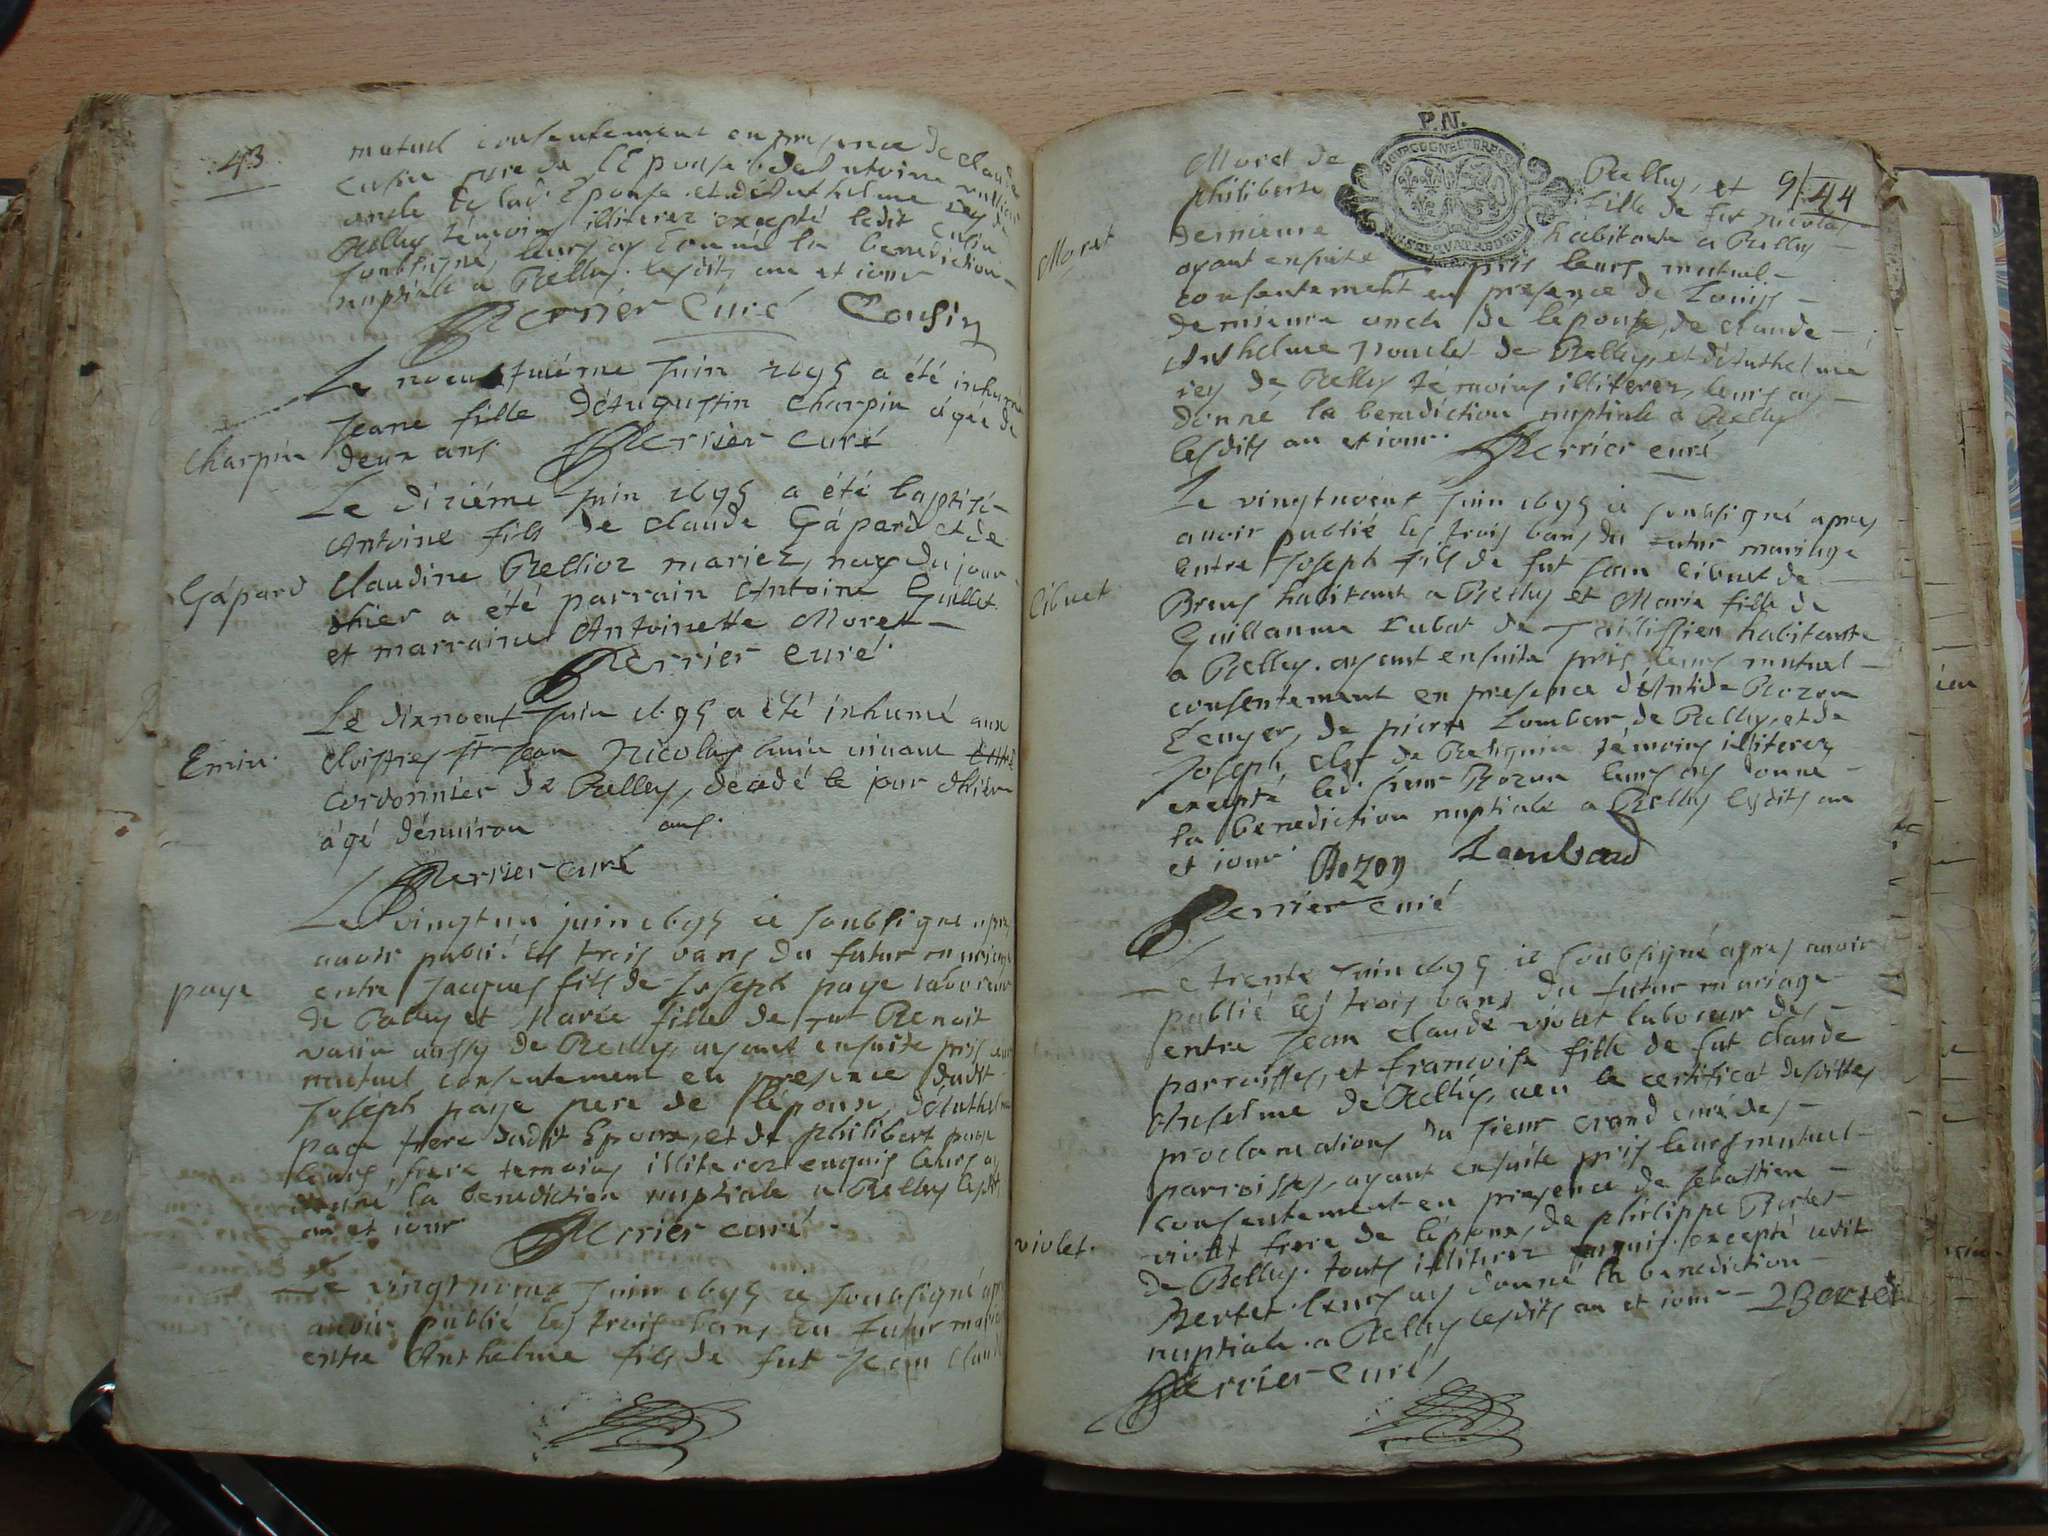 43
mutuel consentement en presence de claude
cusin pere de l'Epouse de Antoine
oncle de lad. Epouse et d'Anthelme rey de
Belley témoins illiterez excepté ledit cusin
soubsigné, leurs ay donné la benediction
nuptiale a Belley. lesdits an et iour
Perrier Curé Cousin
Le neufuiéme Juin 1695 a été inhumé
Charpin
Jeane fille d'Augustin Charpin ágée de
deux ans Perrier curé
Le diziéme Juin 1695 a été baptisé
Antoine fils de claude Gápard et de
Gápard
Claudine Bellioz mariez, nay du jour
dhier a été parrain Antoine Guillet
et marraine Antoinette Moret
Perrier Curé.
Le dixnoeuf Juin 1695 a été inhumé aux
Emin.
cloistres st Jean Nicolas Emin vivant
Cordonnier de Belley, décédé le jour dhier
ágé d'environ ans.
Perrier curé
Le vingtun juin 1695 ie soubsigné apres
auoir publié les trois bans du futur mariage
paye
entre Jacques fils de Joseph paye laboureur
de Belley et Marie fille de fut Benoit
aussy de Belley, ayant ensuite pris leur
mutuel consentement en presence dudit
Joseph paye pere de l'époux, d'Anthelme
paye frere dudit Epoux, et de philibert paye
leurs frere temoins illiterez enquis leurs ay
donné la benediction nuptiale a Belley lesdits
an et iour Perrier curé.
Le vingtneuf Juin 1695 ie soubsigné apres
auoir publié les trois bans du futur mariage
entre Anthelme fils de fut Jean Claude
P.N.
Moret de Belley, et 9 44
philiberte fille de fut Nicolas
Moret
demieure habitante a Belley
ayant ensuite pris leurs mutuel
consentement en presence de Louys
demieure oncle de lepouse, de claude
Anthelme poncet de Belley, et d'Anthelme
rey de Belley témoins illiterez, leurs ay
donné la benediction nuptiale a Belley
lesdits an et iour. Perrier curé
Le vingtneuf Juin 1695 ie soubsigné apres
auoir publié les trois bans du futur mariage
entre Joseph fils de fut Jean Cibuet de
Cibuet
Brens habitant a Belley et Marie fille de
Guillaume Lubat de habitante
a Belley. ayant ensuite pris leurs mutuel
consentement en presence d'Antide Rozon
Ecuyer, de pierre Lombar de Belley, et de
Joseph clef de témoins illiterez
excepté led. sieur Rozon leurs ay donné
la benediction nuptiale a Belley lesdits an
et iour. Rozon Lombard
Perrier curé
Le trente Juin 1695 ie soubsigné apres auoir
publié les trois bans du futur mariage
entre Jean claude violet laboureur des
parroisses, et françoise fille de fut claude
Anselme de Belley, ueu le certificat desdittes
proclamations du sieur Grand curé des
parroisses, ayant ensuite pris leurs mutuel
consentement en presence de sebastien
violet.
violet frere de l'époux, de philippe Bertet
de Belley. touts illiterez enquis. excepté ledit
Bertet. leurs ay donné la benediction
nuptiale. a Belley lesdits an et iour Bertet
Perrier curé